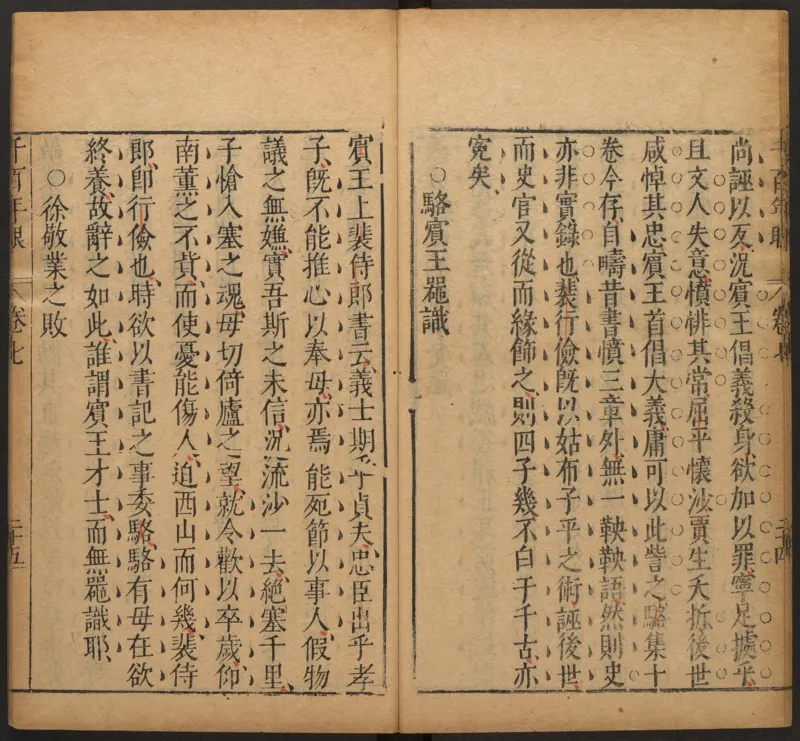 尚誣以反況賓王倡義殺身欲加以罪寧足據乎
且文人失意憤悱其常屈平懷沙賈生夭折後世
咸悼其忠賓王首倡大義庸可以此訾之駱集十
卷今存自疇昔書憤三章外無一鞅鞅語然則史
亦非實錄也裴行儉旣以姑布子平之術誣後世
而史官又從而緣飾之則四子幾不白于千古亦
寃矣
○駱賓王噐識
卷七
二十四
賓王上裴侍郎書云義士期乎貞夫忠臣出乎孝
子旣不能推心以奉母亦焉能死節以事人假物
議之無嫌實吾斯之未信況流沙一去絕塞千里
子愴入塞之魂母切倚廬之望就令歡以卒歲仰
南薰之不貲而使憂能傷人迫西山而何幾裴侍
郎卽行儉也時欲以書記之事委駱駱有母在欲
終養故辭之如此誰謂賓王才士而無噐識耶
○徐敬業之敗
千百年眼
卷七
二十五